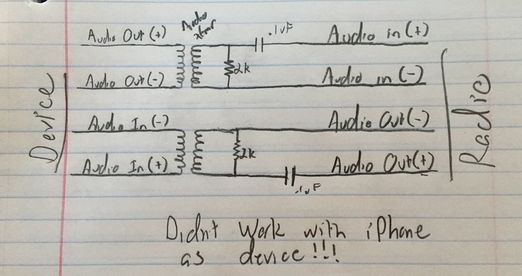 Audio Out (+)
Audio
xfmr
.1uF
Audio in (+)
2k
Audio Out (-)
Audio in (-)
Device
Radio
Audio In (-)
Audio Out (-)
2k
Audio In (+)
Audio Out (+)
.1uF
Didnt Work with iPhone
as device!!!